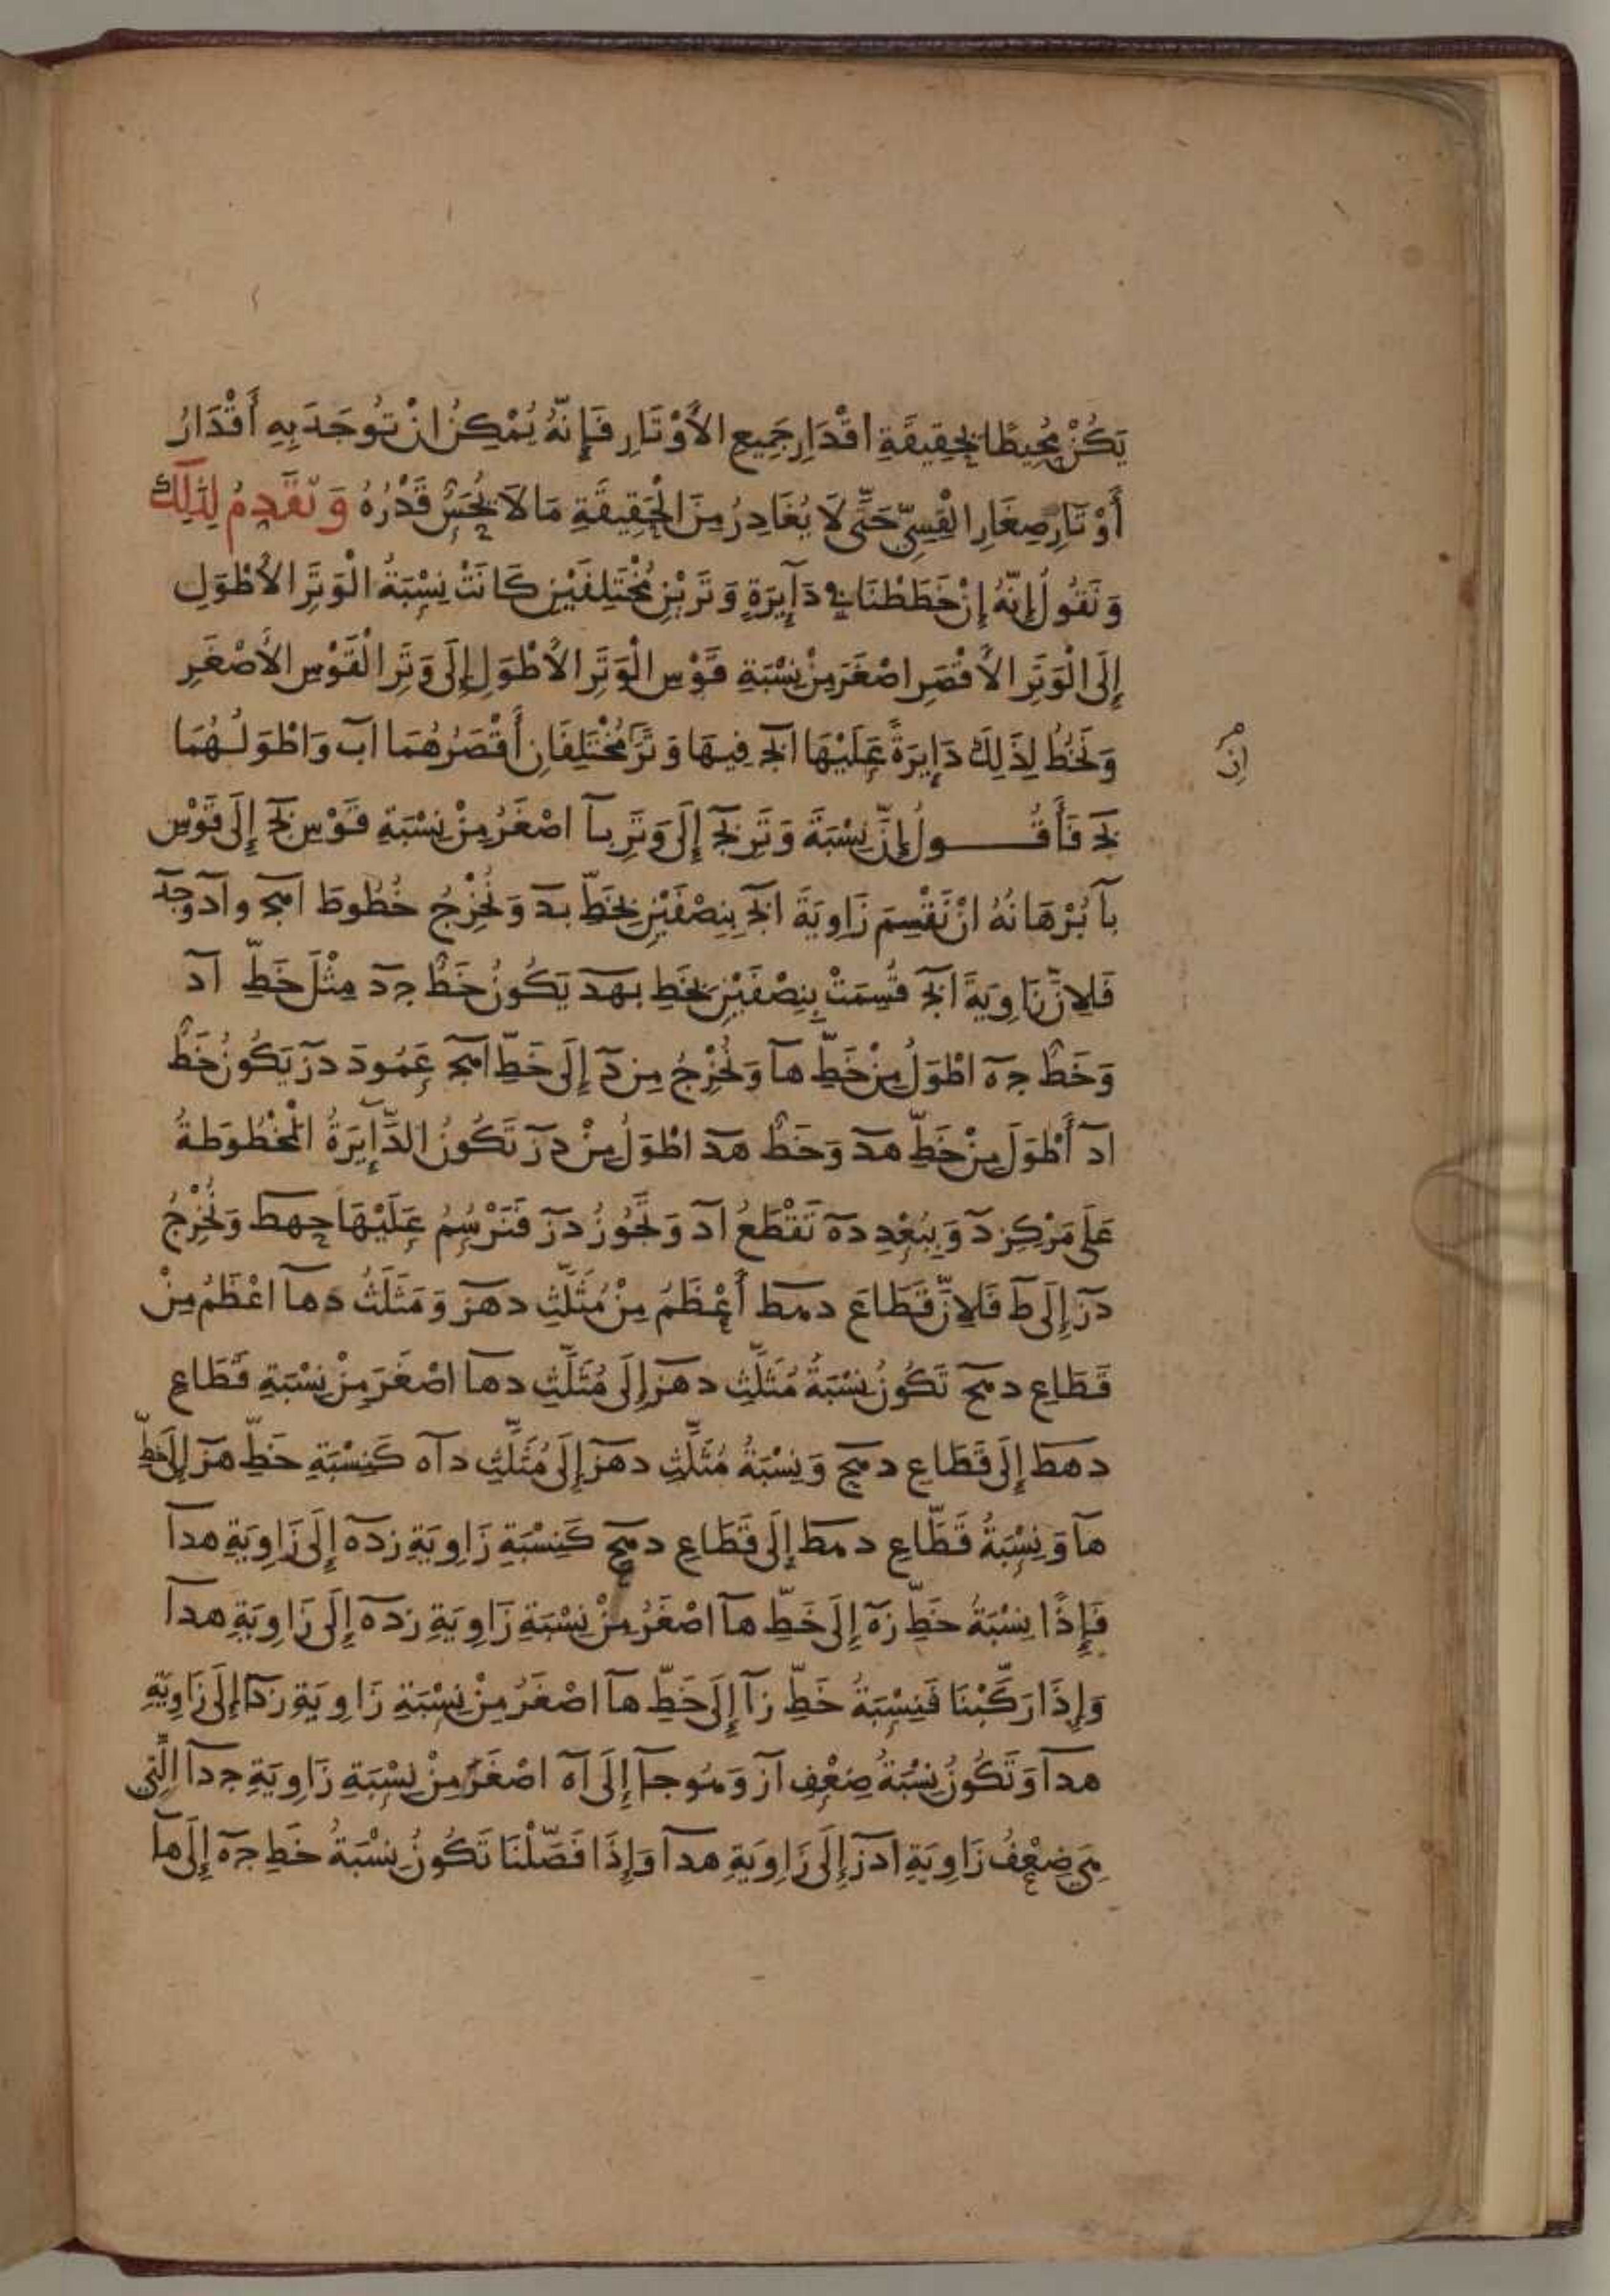 يَكُنْ مُحِيطًا بِحَقِيقَةِ اقْدَارِ جَمِيعِ الأَوْتَارِ فَإِنَّهُ يُمْكِنُ انْ تُوجَدَ بِهِ أَقْدَارُ
أَوْتَارِ صِغَارِ الْقِسِيِّ حَتَّى لَا يُغَادِرُ مِنَ الْحَقِيقَةِ مَا لَا يُحَسُّ قَدْرُهُ وَنُقَدِمُ لِذَلِكَ
وَنَقُولُ إِنَّهُ إِنْ خَطَطْنَا فِي دَآيِرَةٍ وَتَرَيْنِ مُخْتَلِفَيْنِ كَانَتْ نِسْبَةُ الْوَتَرِ الأَطْوَلِ
إِلَى الْوَتَرِ الأَقْصَرِ اصْغَرَ مِنْ نِسْبَةِ قَوْسِ الْوَتَرِ الأَطْوَلِ إِلَى وَتَرِ الْقَوْسِ الأَصْغَرِ
وَنَخُطُّ لِذَلِكَ دَايِرَةً عَلَيْهَا ابج فِيهَا وَتَرَا مُخْتَلِفَانِ أَقْصَرُهُمَا اب وَاطْوَلُهُمَا
ان
بج فَأَقُولُ إِنَّ نِسْبَةَ وَتَرِ بج إِلَى وَتَرِ با اصْغَرُ مِنْ نِسْبَةِ قَوْسِ بج إِلَى قَوْسِ
با بُرْهَانُهُ انْ نَقْسِمَ زَاوِيَةَ ابج بِنِصْفَيْنِ بِخَطِّ بد وَنُخْرِجُ خُطُوطَ اهج واد وجد
فَلِانَّ زَاوِيَةَ ابج قُسِمَتْ بِنِصْفَيْنِ بِخَطِ بهد يَكُونُ خَطُّ جد مِثْلَ خَطِّ اد
وَخَطُّ جه اطْوَلُ مِنْ خَطِّ ها وَنُخْرِجُ مِن د إِلَى خَطِّ اهج عَمُودَ دز يَكُونُ خَطُّ
اد أَطْوَلَ مِنْ خَطِّ هد وَخَطُّ هد اطْوَلُ مِنْ دز تَكُونُ الدَّآيِرَةُ الْمَخْطُوطَةُ
عَلَى مَرْكِزِ د وَبِبُعْدِ ده تَقْطَعُ اد وَتَجُوزُ دز فَنَرْسُمُ عَلَيْهَا حهط وَنُخْرِجُ
دز إِلَى ط فَلِانَّ قَطَاعَ دهط أَعْظَمُ مِنْ مُثَلَّثِ دهز وَمَثَلَثُ دها اعْظَمُ مِنْ
قَطَاعِ دهح تَكُونُ نِسْبَةُ مُثَلَّثِ دهز إِلَى مُثَلَّثِ دها اصْغَرَ مِنْ نِسْبَةِ قَطَاعِ
دهط إِلَى قَطَاعِ دهح وَنِسْبَةُ مُثَلَّثِ دهز إِلَى مُثَلَّثِ داه كَنِسْبَةِ خَطِّ هز إِلَى خَطِّ
ها وَنِسْبَةُ قَطَّاعِ دهط إِلَى قَطَاعِ دهح كَنِسْبَةِ زَاوِيَةِ زده إِلَى زَاوِيَةِ هدا
فَإِذًا نِسْبَةُ خَطِّ زه إِلَى خَطِّ ها اصْغَرُ مِنْ نِسْبَةِ زَاوِيَةِ زده إِلَى زَاوِيَةِ هدا
وَإِذَا رَكَّبْنَا فَنِسْبَةُ خَطِّ زا إِلَى خَطِّ ها اصْغَرُ مِنْ نِسْبَةِ زَاوِيَةِ زدا إِلَى زَاوِيَةِ
هدا وَتَكُونُ نِسْبَةُ ضِعْفِ از وَهُوَ جا إِلَى اه اصْغَرَ مِنْ نِسْبَةِ زَاوِيَةِ جدا الَّتِي
هِيَ ضِعْفُ زَاوِيَةِ ادز إِلَى زَاوِيَةِ هدا وَإِذَا فَصَّلْنَا تَكُونُ نِسْبَةُ خَطِ جه إِلَى ها